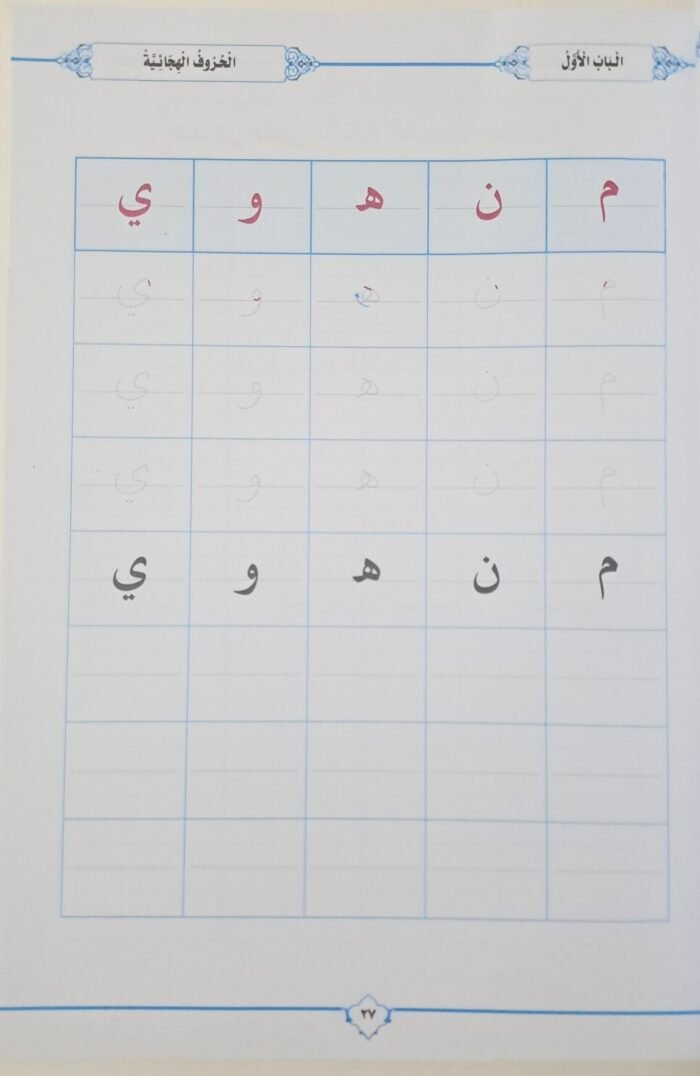 الْبَابُ الْأَوَّلُ
الْحُرُوفُ الْهِجَائِيَّةُ
م ن ه و ي
م ن ه و ي
م ن ه و ي
م ن ه و ي
م ن ه و ي
٢٧